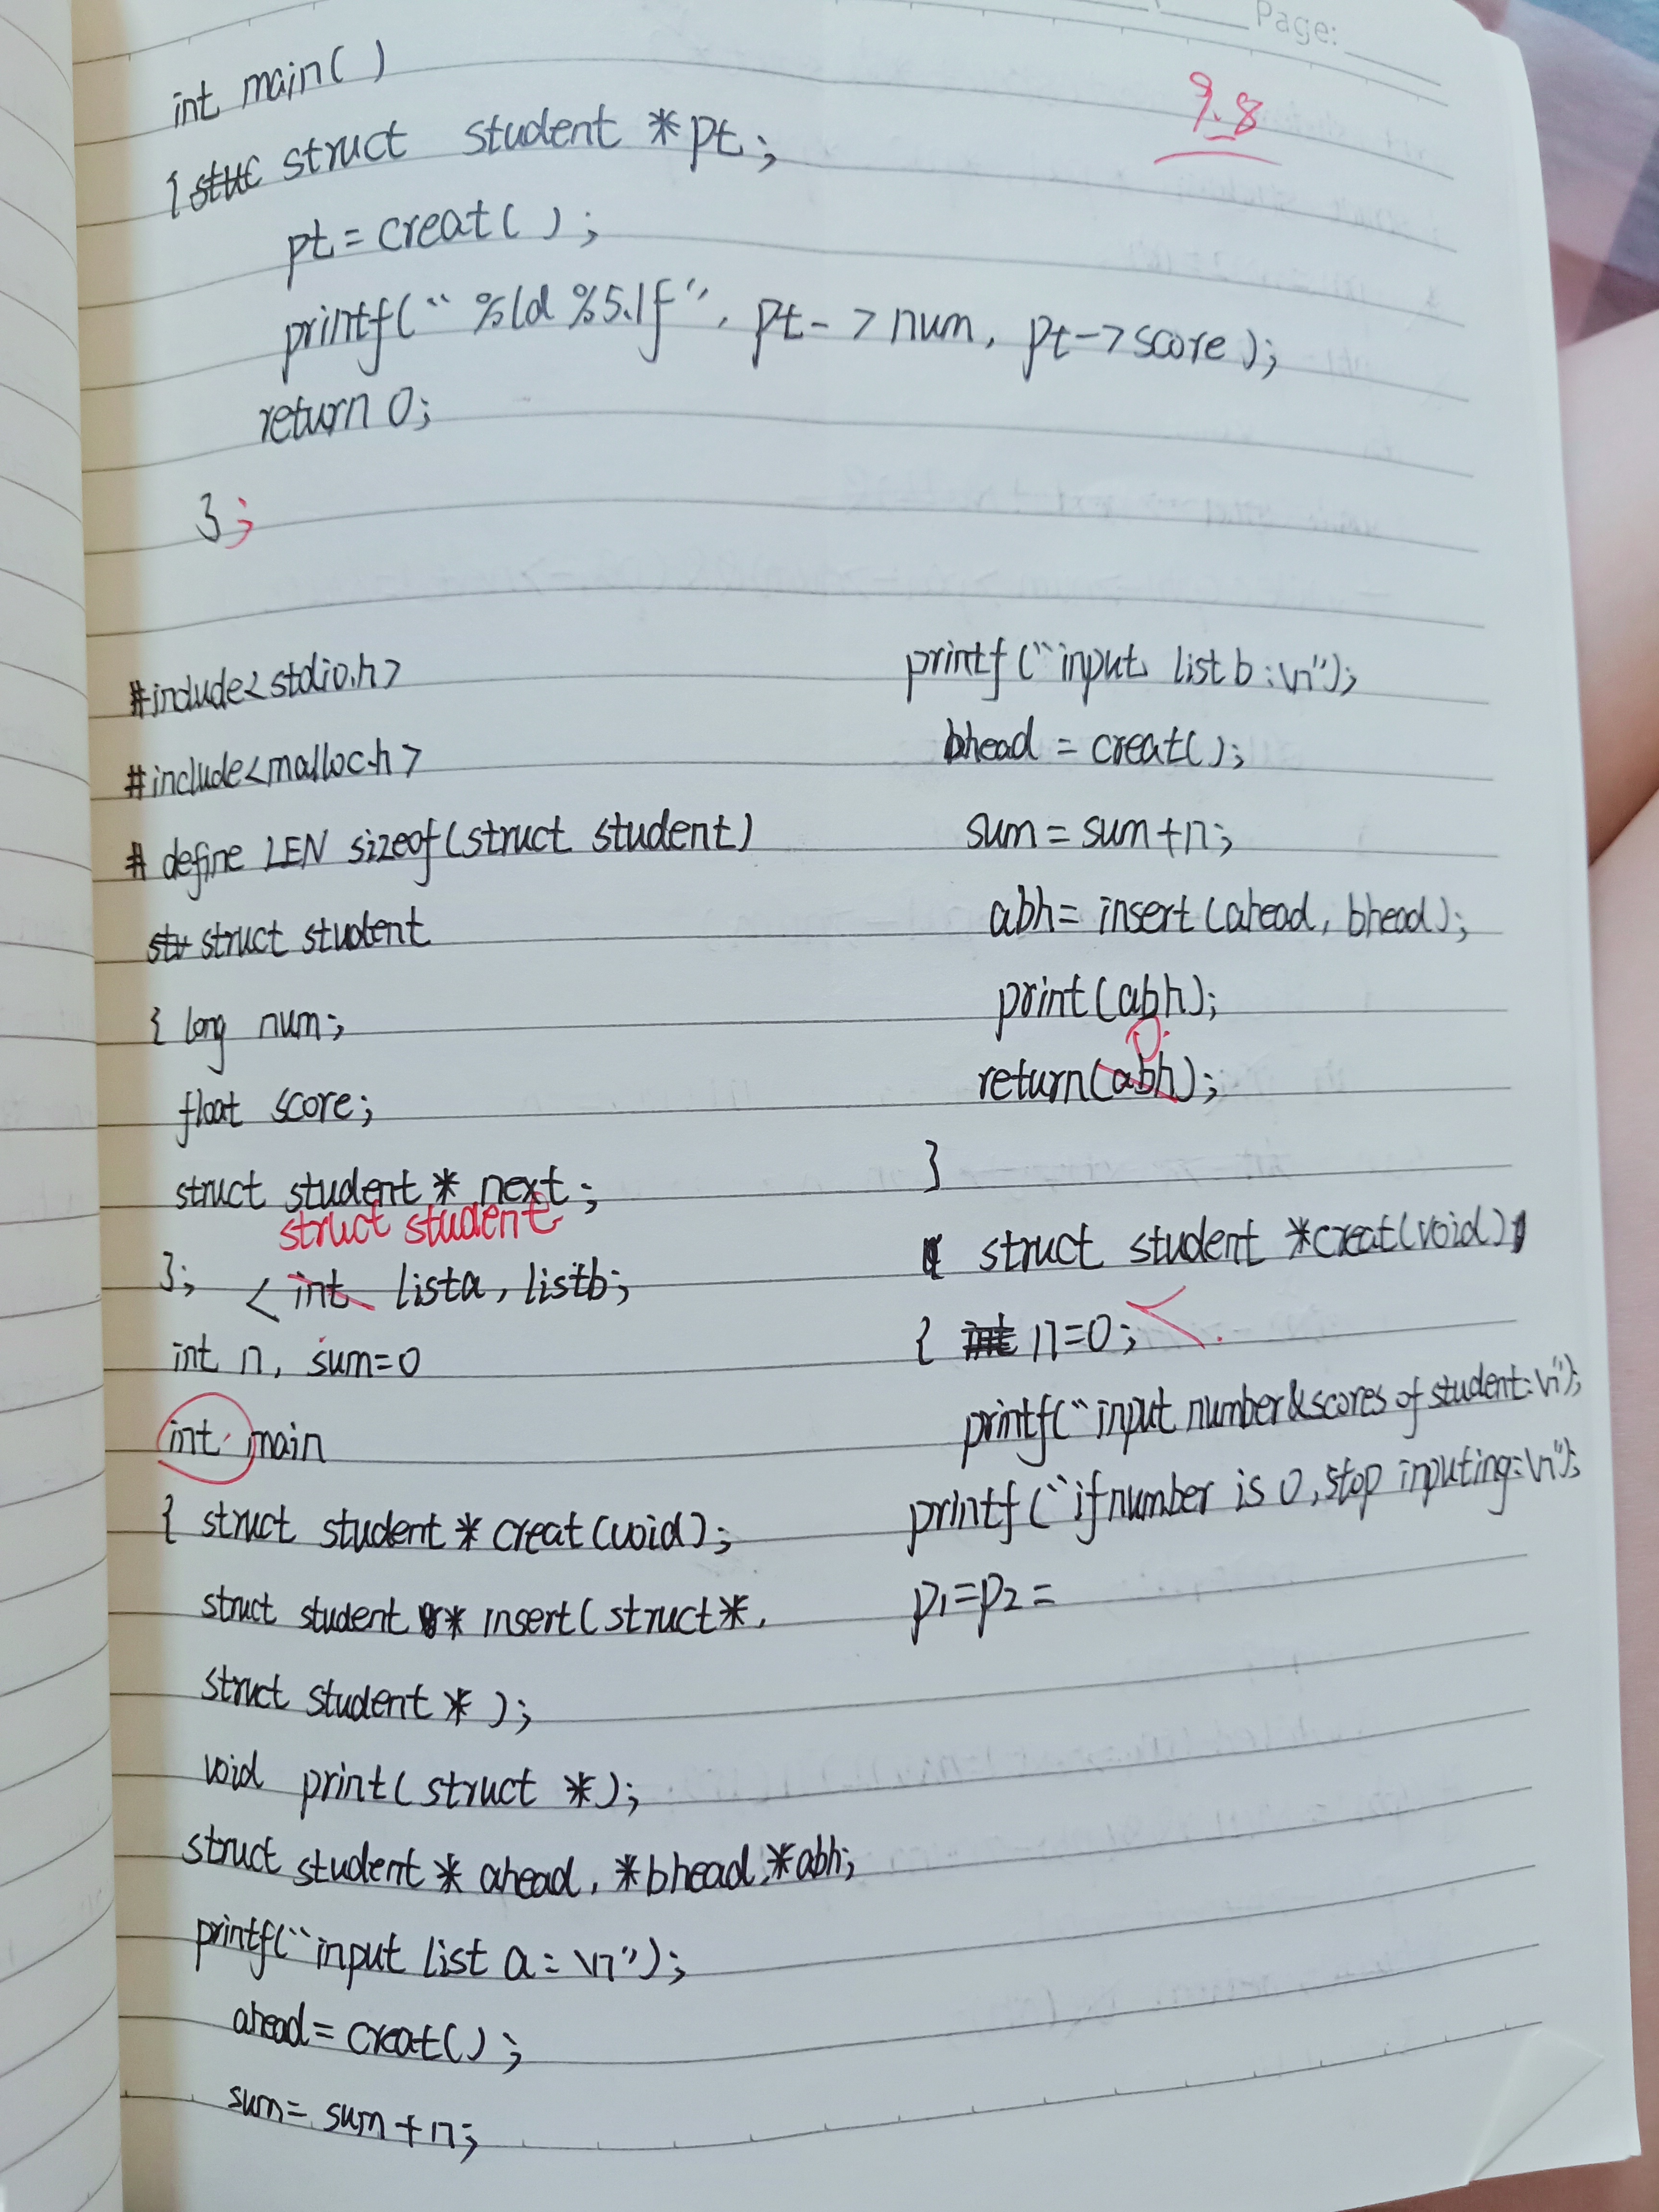 Page:
9.8
int main( )
{ struct student *pt;
pt = creat( );
printf(“ %ld %5.1f”, pt- >num, pt->score);
return 0;
};
#include<stdio.h>
#include<malloc.h>
# define LEN sizeof(struct student)
struct student
{ long num;
float score;
struct student * next;
struct student
}; < int lista, listb;
int n, sum=0
int main
{ struct student * creat(void);
struct student * insert(struct*,
struct student * );
void print(struct *);
struct student * ahead, *bhead,*abh;
printf(“input list a: \n”);
ahead= creat();
sum= sum+n;
printf(“input list b:\n”);
bhead = creat();
sum= sum+n;
abh= insert(ahead, bhead);
print(abh);
0
return(abh);
}
struct student *creat(void)
{ int n=0;
printf(“input number&scores of student:\n”);
printf(“if number is 0,stop inputing:\n”);
p1=p2=